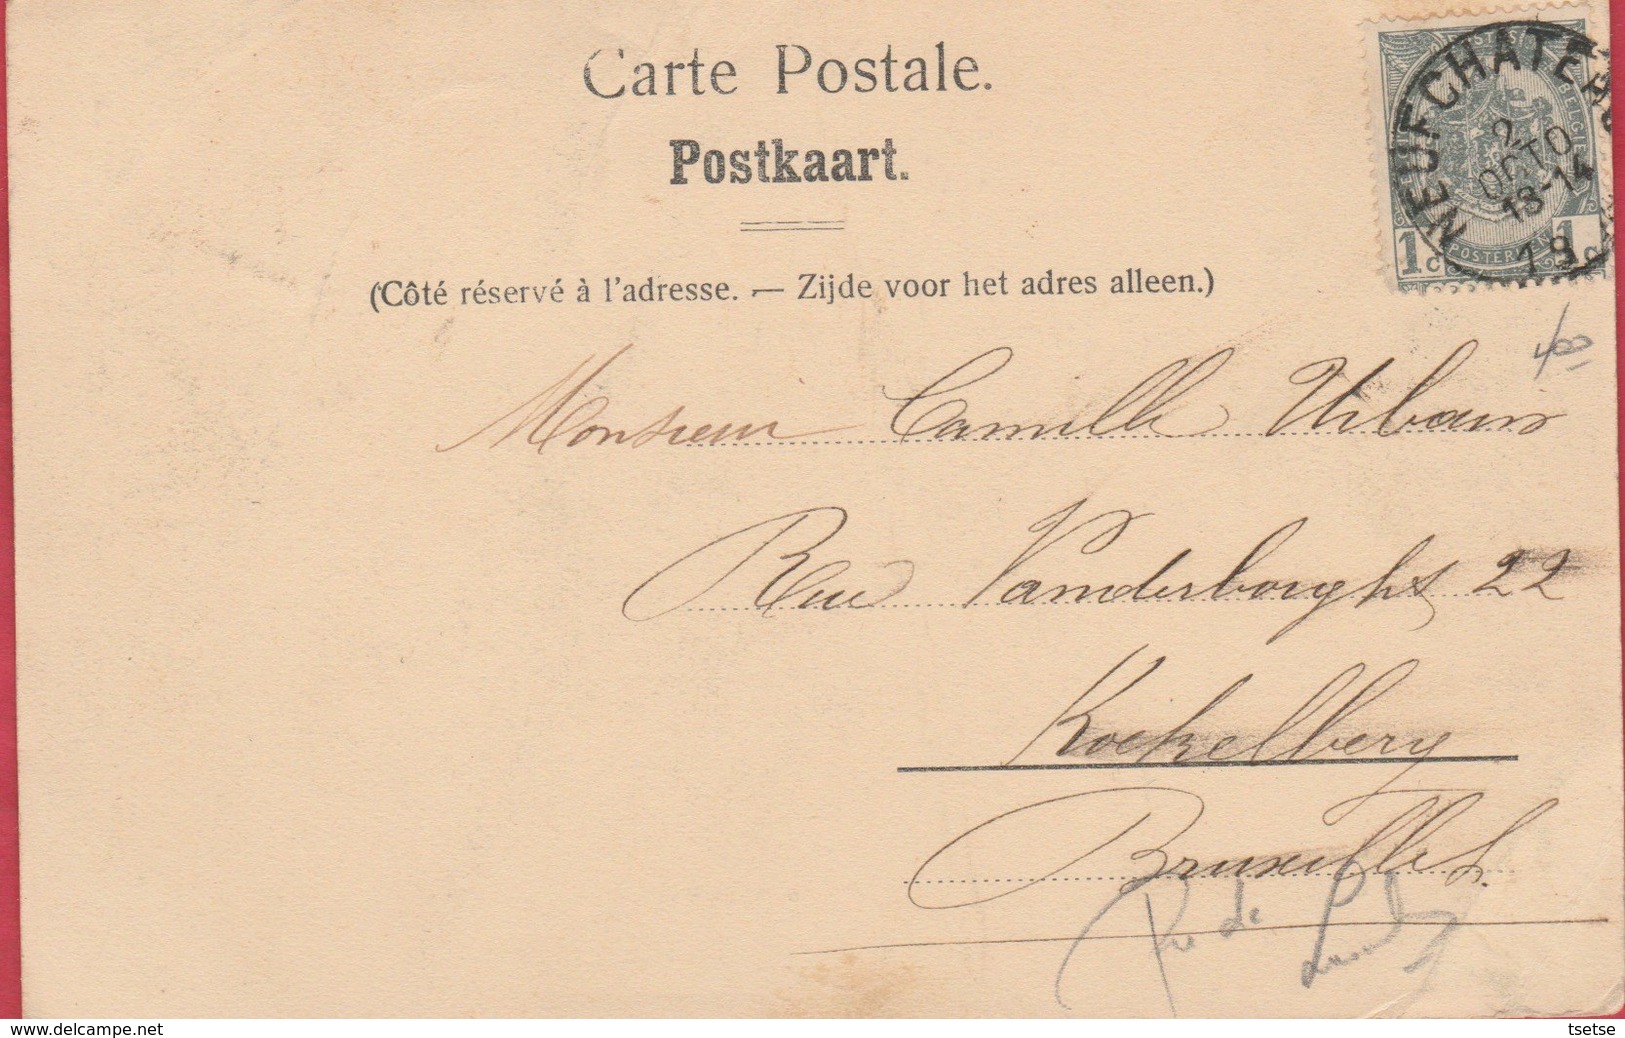 Carte Postale.
Postkaart.
(Côté réservé à l'adresse. — Zijde voor het adres alleen.)
NEUFCHATEAU
2
OCTO
13-14
1c 1c
Monsieur Camille Urbain
Rue Vanderborght 22
Koekelberg
Bruxelles.
Rue de
www.delcampe.net
tsetse